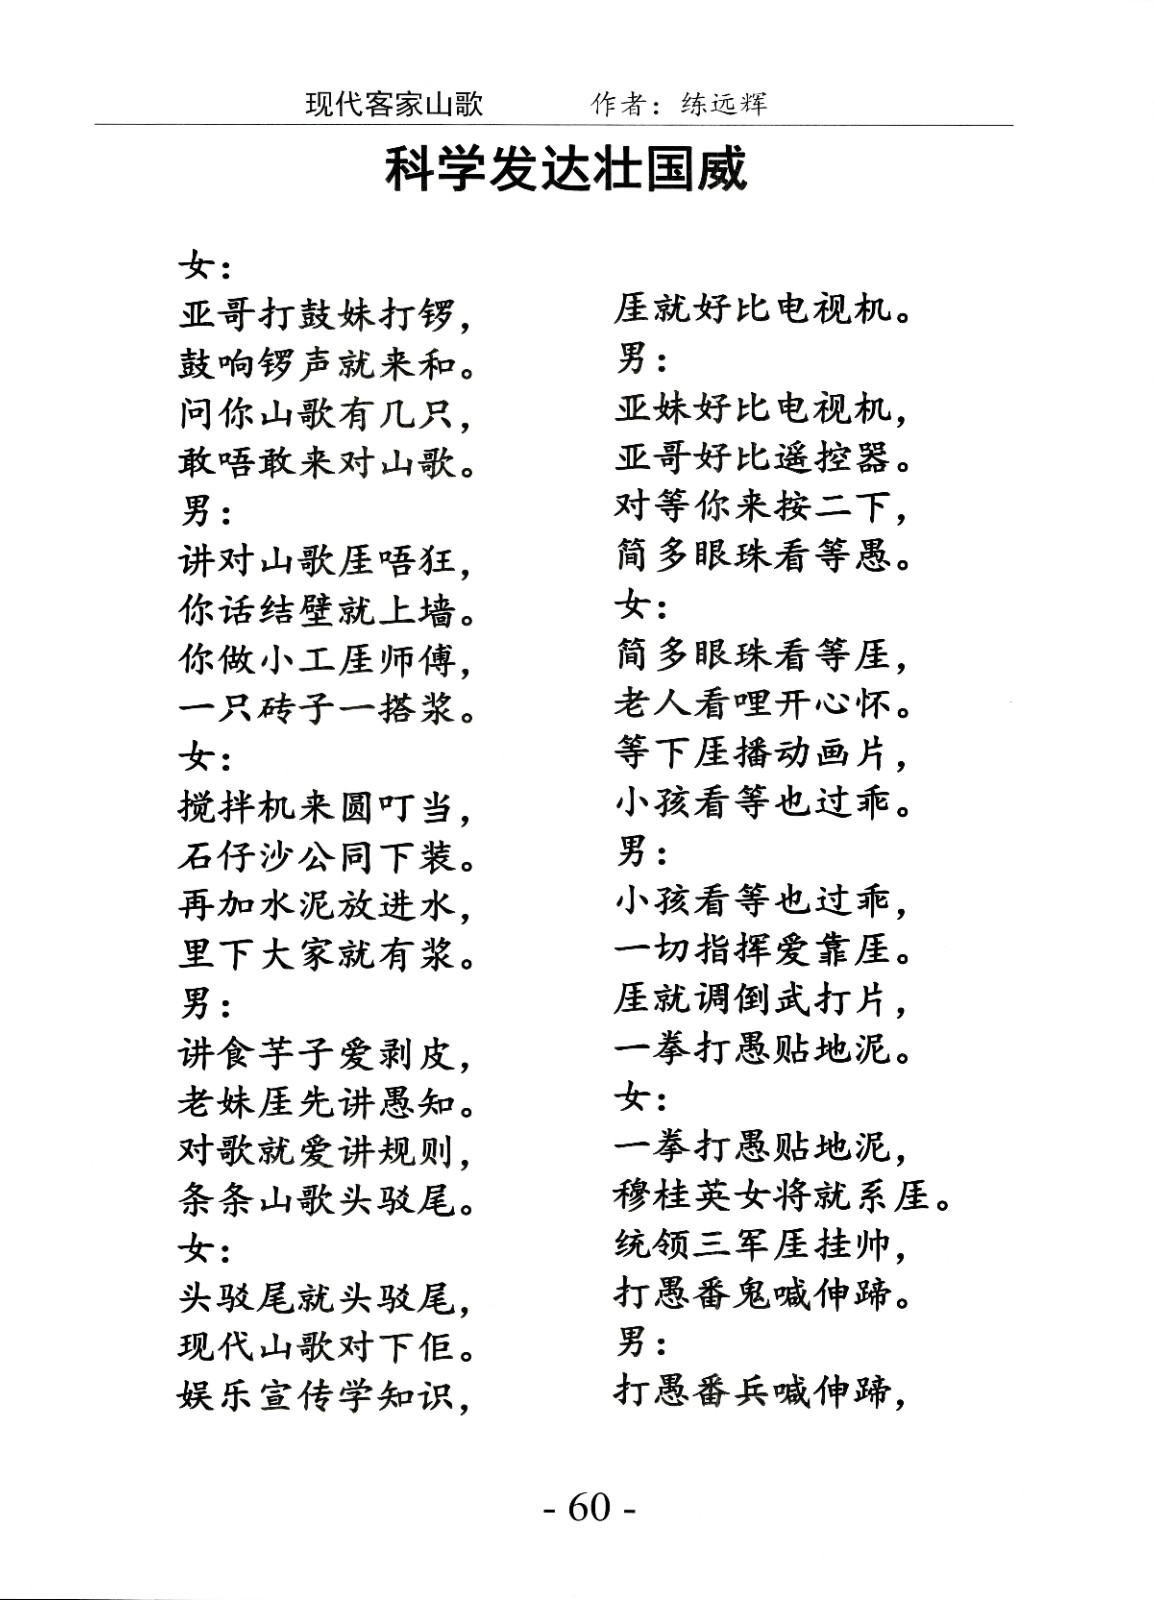 现代客家山歌 作者：练远辉
科学发达壮国威
女：
亚哥打鼓妹打锣，
鼓响锣声就来和。
问你山歌有几只，
敢唔敢来对山歌。
男：
讲对山歌厓唔狂，
你话结壁就上墙。
你做小工厓师傅，
一只砖子一搭浆。
女：
搅拌机来圆叮当，
石仔沙公同下装。
再加水泥放进水，
里下大家就有浆。
男：
讲食芋子爱剥皮，
老妹厓先讲愚知。
对歌就爱讲规则，
条条山歌头驳尾。
女：
头驳尾就头驳尾，
现代山歌对下佢。
娱乐宣传学知识，
厓就好比电视机。
男：
亚妹好比电视机，
亚哥好比遥控器。
对等你来按二下，
简多眼珠看等愚。
女：
简多眼珠看等厓，
老人看哩开心怀。
等下厓播动画片，
小孩看等也过乖。
男：
小孩看等也过乖，
一切指挥爱靠厓。
厓就调倒武打片，
一拳打愚贴地泥。
女：
一拳打愚贴地泥，
穆桂英女将就系厓。
统领三军厓挂帅，
打愚番鬼喊伸蹄。
男：
打愚番兵喊伸蹄，
- 60 -